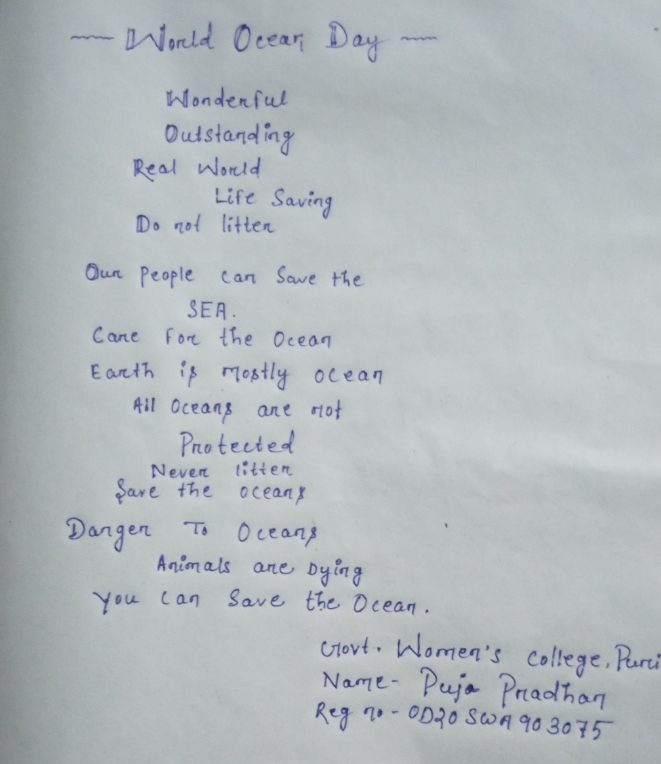 World Ocean Day
Wonderful
Outstanding
Real World
Life Saving
Do not litter
Our People can Save the
SEA.
Care For the Ocean
Earth is mostly ocean
All Oceans are not
Protected
Never litter
Save the oceans
Danger To Oceans
Animals are Dying
You Can Save the Ocean.
Govt. Women's College, Puri
Name- Puja Pradhan
Reg no - OD20SWA903075